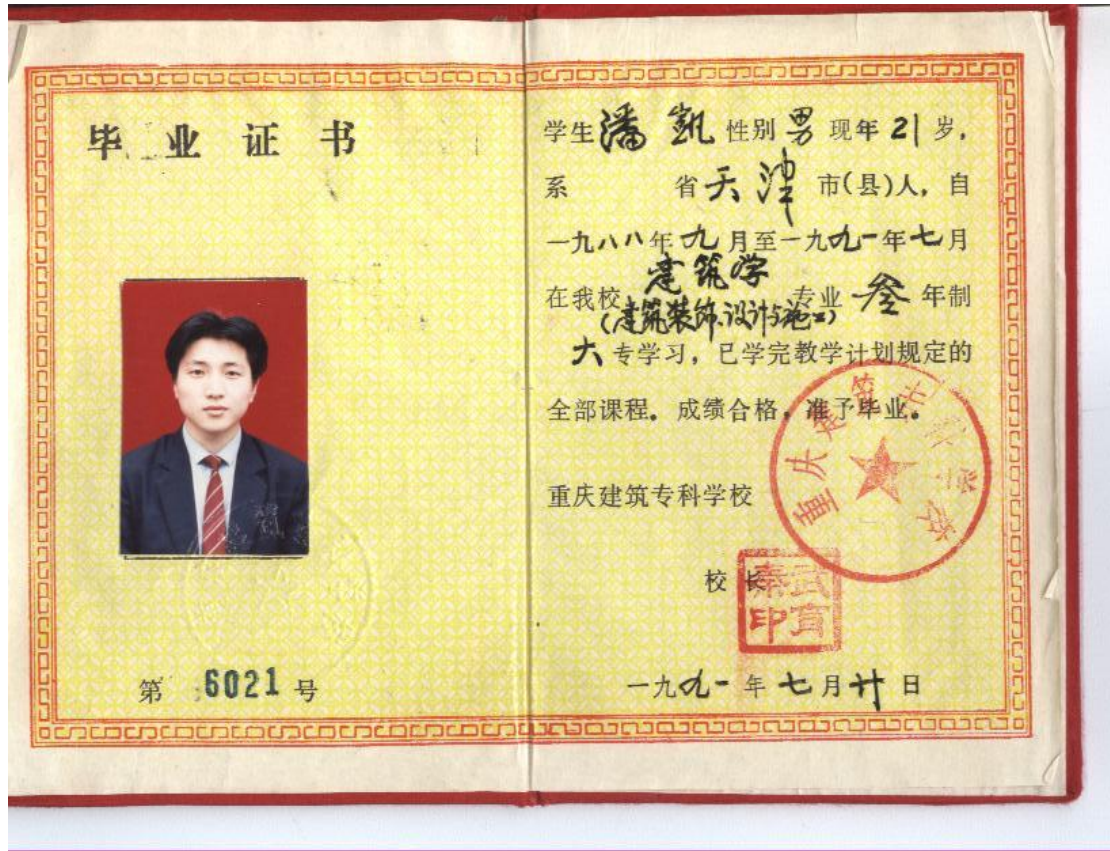 毕业证书
第 6021 号
学生潘凯性别男现年21岁,
系 省天津市(县)人,自
一九八八年九月至一九九一年七月
在我校建筑学专业叁年制
(建筑装饰设计与施工)
大专学习,已学完教学计划规定的
全部课程。成绩合格,准予毕业。
重庆建筑专科学校
重庆建筑专科学校
校长
秦武
印育
一九九一年七月廿日